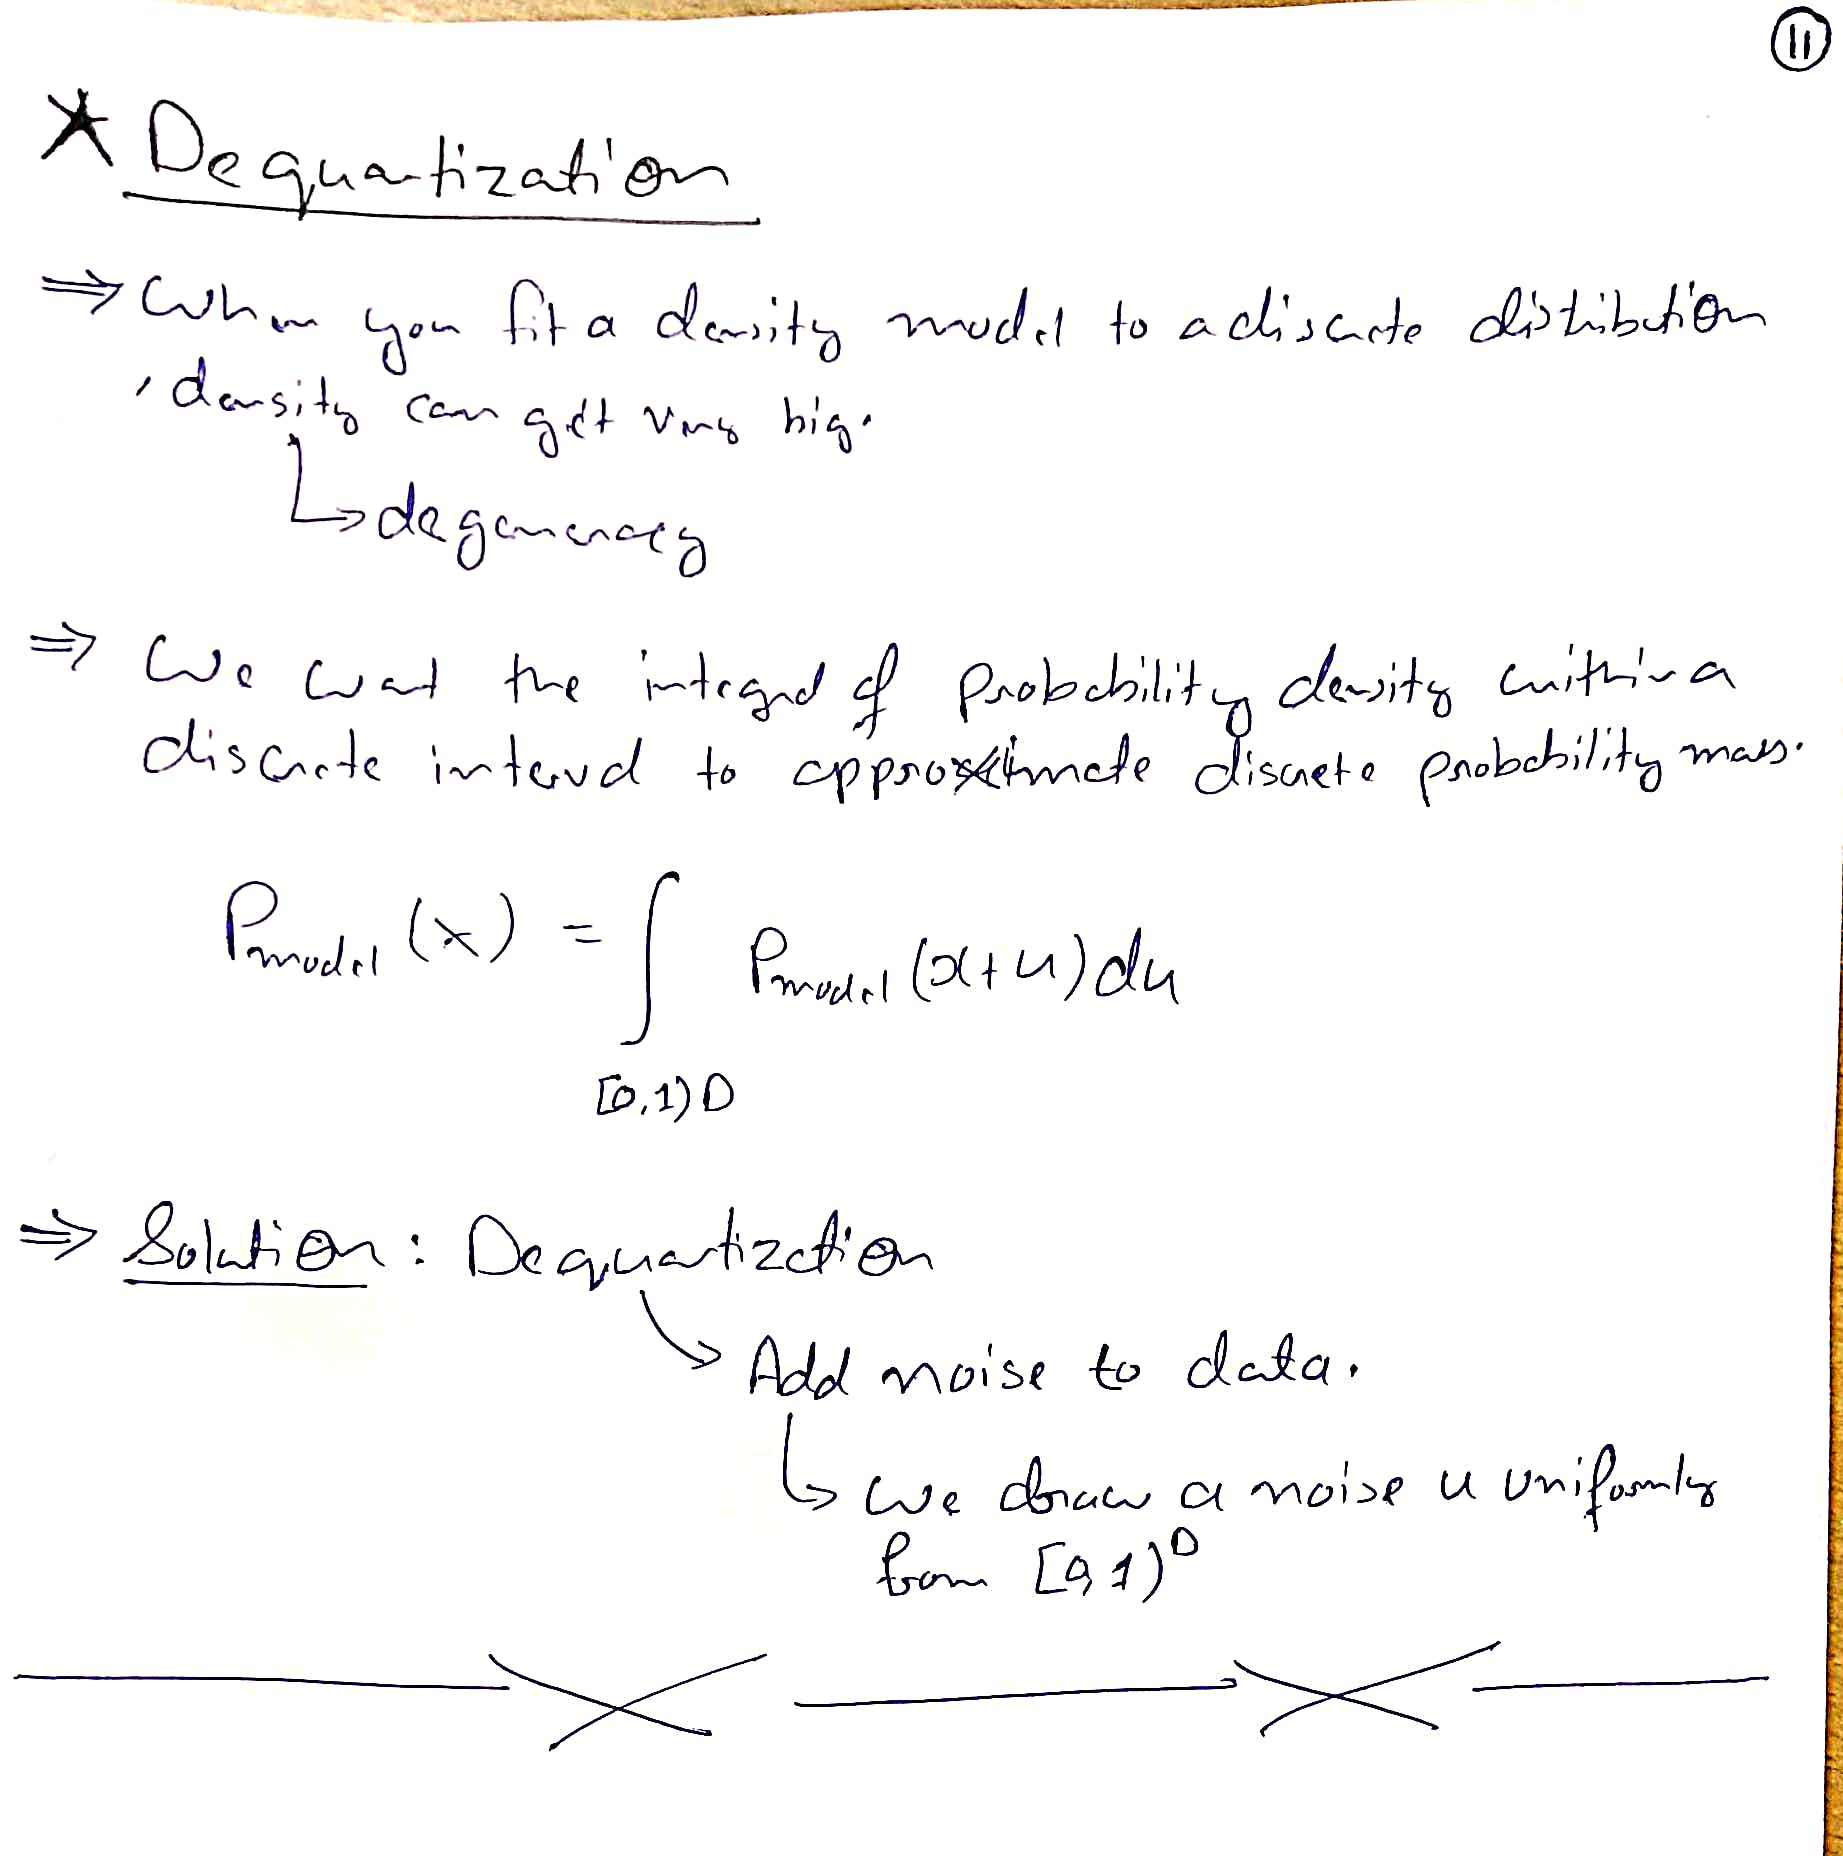 11
* Dequantization
⇒ When you fit a density model to a discrete distribution
, density can get very big.
↳ degeneracy
⇒ We want the integral of probability density within a
discrete interval to approximate discrete probability mass.
Pmodel (x) = ∫ Pmodel (x+u) du
[0,1) D
⇒ Solution : Dequantization
↳ Add noise to data.
↳ we draw a noise u uniformly
from [0,1)^D